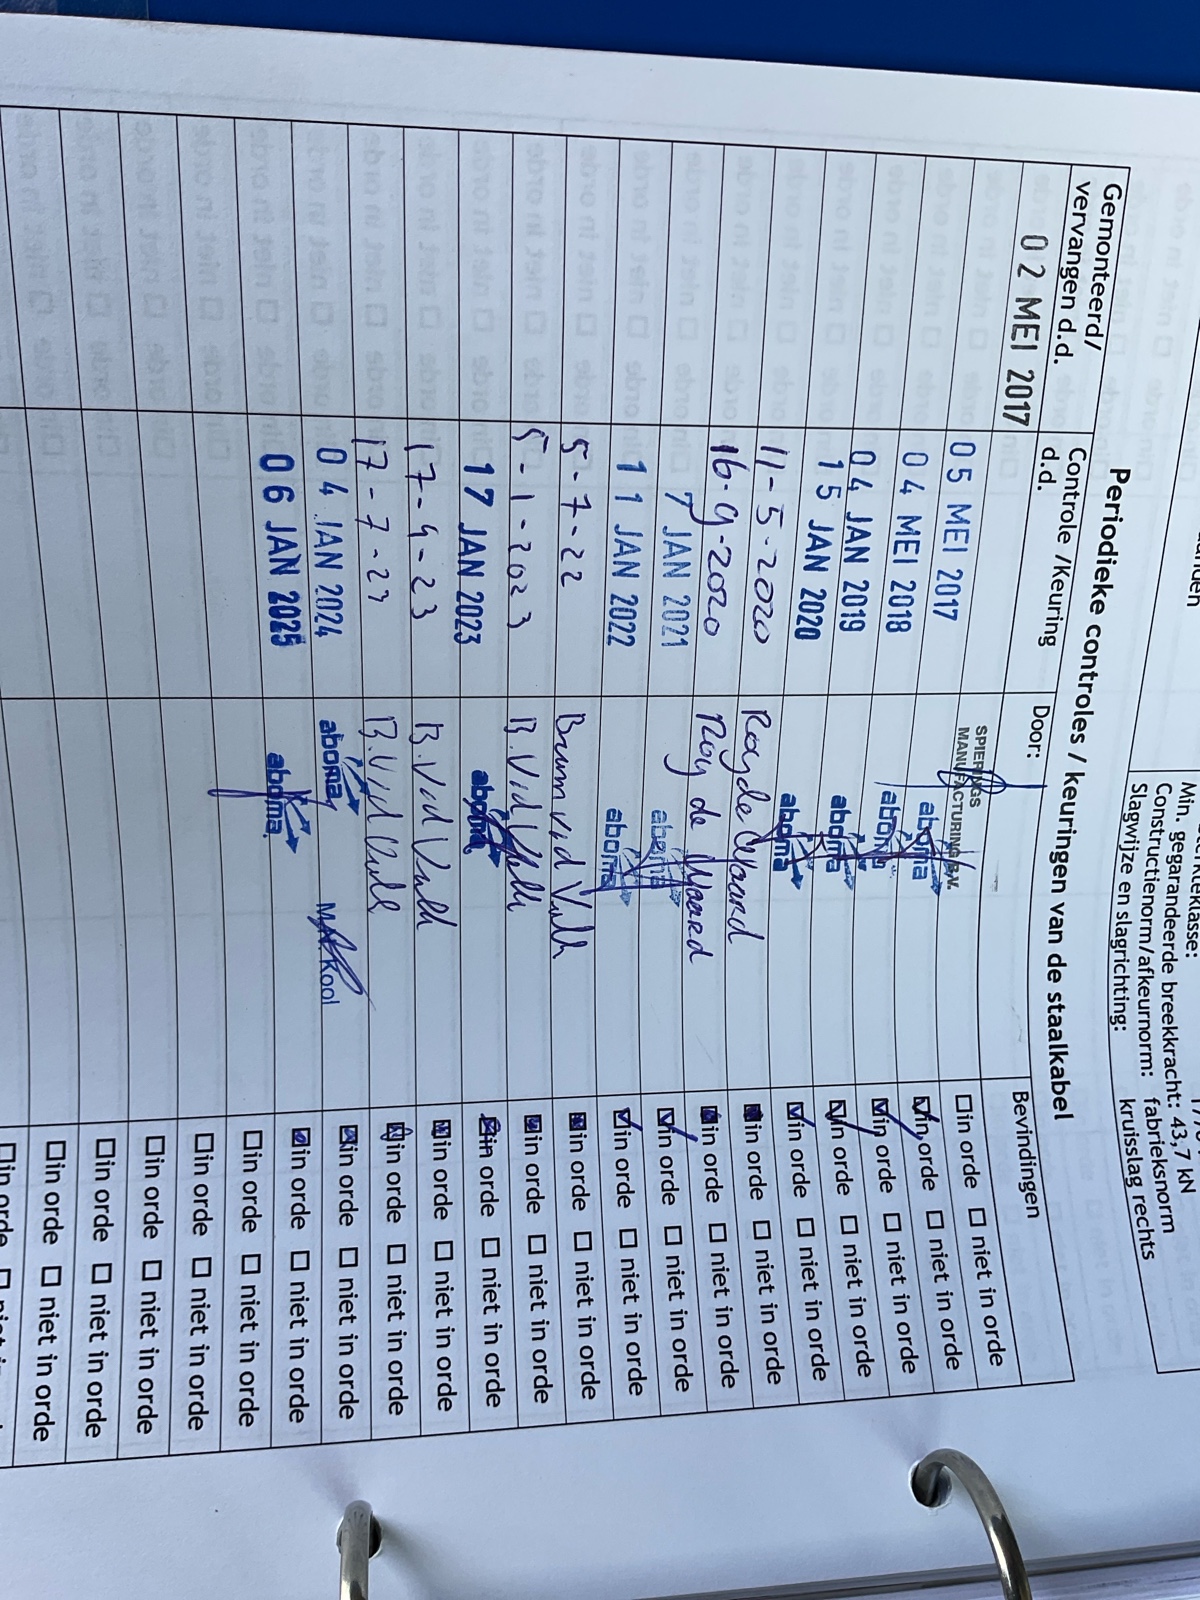 Min. gegarandeerde breekkracht: 43,7 kN
Constructienorm/afkeurnorm: fabrieksnorm
Slagwijze en slagrichting: kruisslag rechts
Periodieke controles / keuringen van de staalkabel
Gemonteerd/ vervangen d.d. Controle /Keuring d.d. Door: Bevindingen
02 MEI 2017 SPIERINGS MANUFACTURING B.V. ☐ in orde ☐ niet in orde
05 MEI 2017 aboma ☑ in orde ☐ niet in orde
04 MEI 2018 aboma ☑ in orde ☐ niet in orde
04 JAN 2019 aboma ☑ in orde ☐ niet in orde
15 JAN 2020 aboma ☑ in orde ☐ niet in orde
11-5-2020 Roy de ☒ in orde ☐ niet in orde
16-9-2020 Roy de ☒ in orde ☐ niet in orde
7 JAN 2021 aboma ☑ in orde ☐ niet in orde
11 JAN 2022 aboma ☑ in orde ☐ niet in orde
5-7-22 vid ☒ in orde ☐ niet in orde
5-1-2023 B. vid ☒ in orde ☐ niet in orde
17 JAN 2023 aboma ☒ in orde ☐ niet in orde
17-4-23 B. vid ☒ in orde ☐ niet in orde
17-7-23 B. vid ☒ in orde ☐ niet in orde
04 JAN 2024 aboma Kool ☒ in orde ☐ niet in orde
06 JAN 2025 aboma ☒ in orde ☐ niet in orde
☐ in orde ☐ niet in orde
☐ in orde ☐ niet in orde
☐ in orde ☐ niet in orde
☐ in orde ☐ niet in orde
☐ in orde ☐ niet in orde
☐ in orde